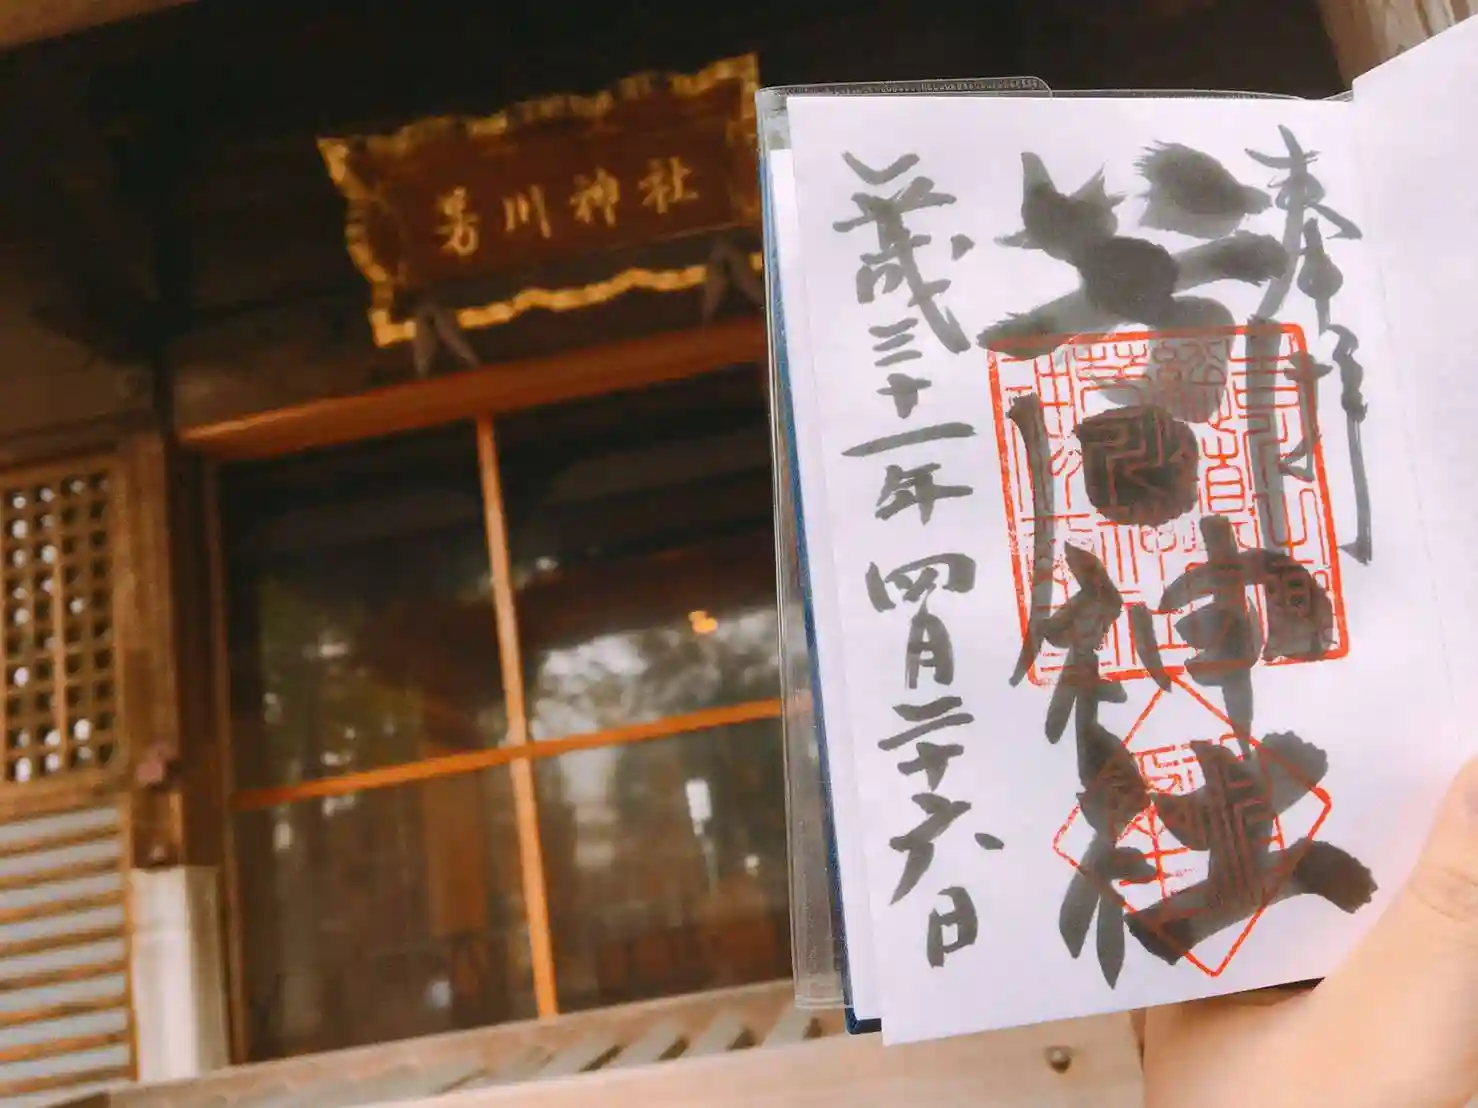 芳川神社
奉拝
芳川神社
平成三十一年四月二十六日